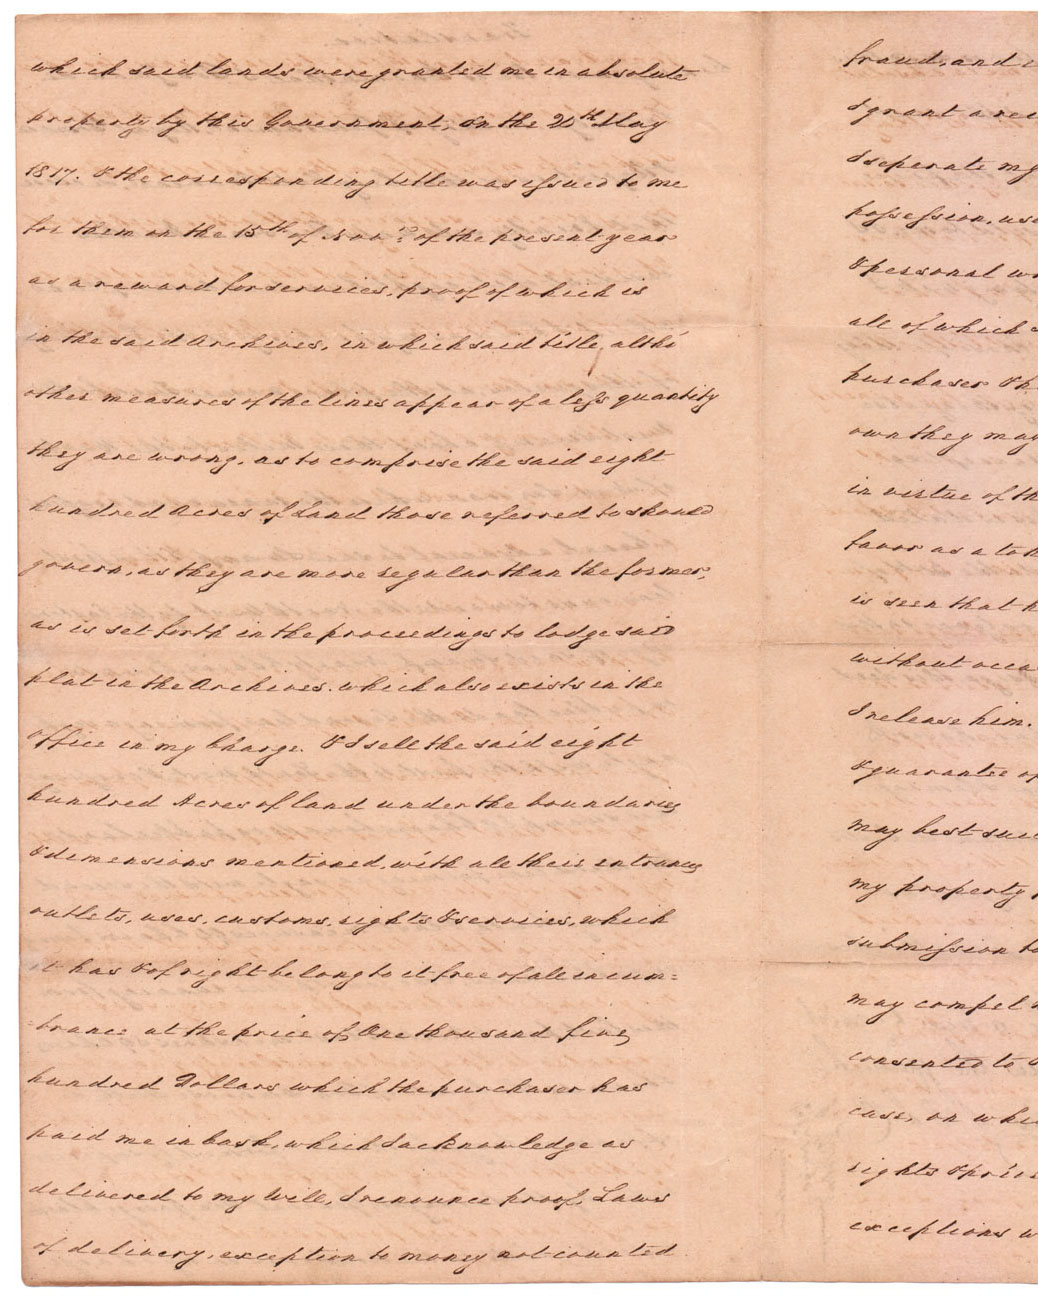 which said lands were granted me in absolute
property by this Government, on the 20th May
1817. & the corresponding title was issued to me
for them on the 15th of Novr. of the present year
as a reward for services, proof of which is
in the said Archives, in which said title, altho'
other measures of the lines appear of a less quantity
they are wrong, as to comprise the said eight
hundred Acres of Land those referred to should
govern, as they are more regular than the former,
as is set forth in the proceedings to lodge said
plat in the Archives. which also exists in the
office in my Charge. & I sell the said eight
hundred Acres of land under the boundaries
& demensions mentioned, with all their entrances
outlets, uses, customs, rights & services, which
it has & of right belong to it free of all incum=
brance at the price of One thousand five
hundred Dollars which the purchaser has
paid me in Cash, which I acknowledge as
delivered to my Will, I renounce proof, Laws
of delivery, exception to money not counted
fraud, and
I grant a rec
I seperate my
possession, use
& personal
all of which
purchaser &
own they may
in virtue of th
favor as a
is seen that
without
I release him.
& guarantee of
may best
my property
submission to
may compel
consented to
case, on whi
rights &
exceptions w